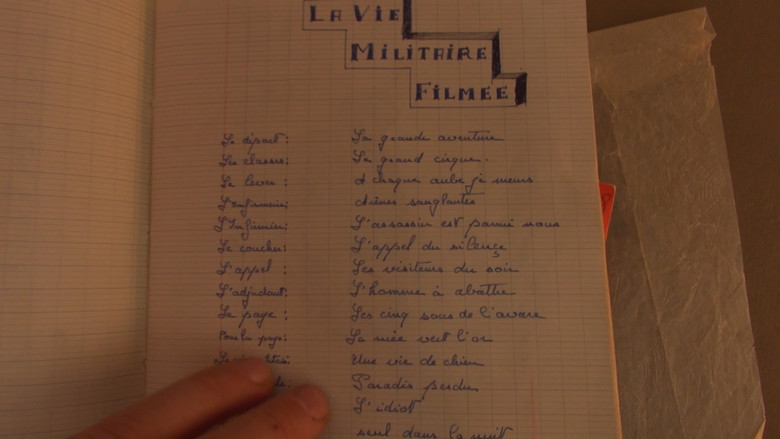 LA VIE
MILITAIRE
FILMEE
Le départ: La grande aventure
Les classes: Le grand cirque.
Le lever: A chaque aube je meurs
L'Infirmerie: Arènes sanglantes
L'Infirmier: L'assassin est parmi nous
Le coucher: L'appel du silence
L'appel: Les visiteurs du soir
L'adjudant: L'homme à abattre
La paye: Les cinq sous de l'avare
La ruée vers l'or
Une vie de chien
Paradis perdu
L'idiot
seul dans la nuit